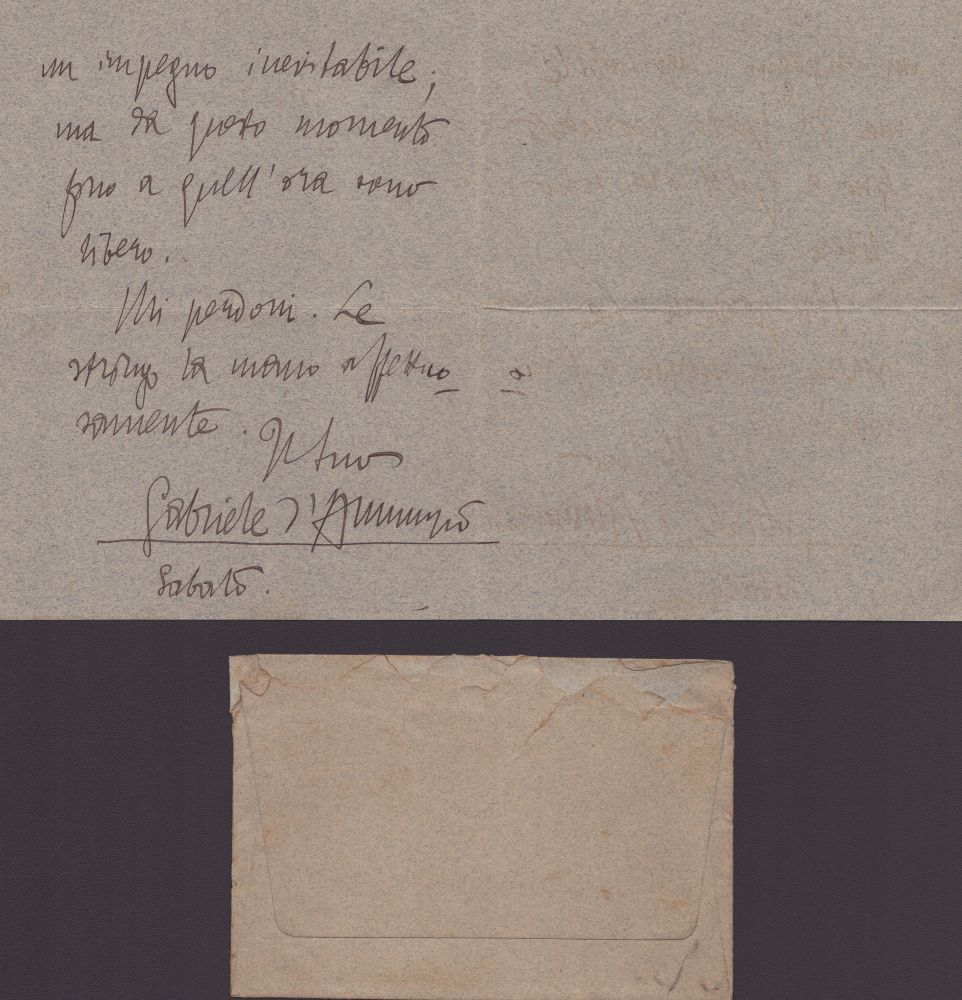 un impegno inevitabile;
ma da questo momento
fino a quell'ora sono
libero..
Mi perdoni. Le
stringo la mano affettuo
samente.
Il suo
Gabriele d'Annunzio
Sabato.